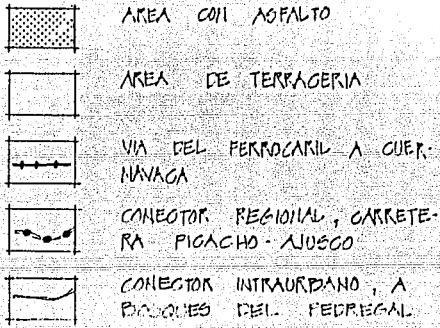 AREA CON ASFALTO
AREA DE TERRACERIA
VIA DEL FERROCARIL A CUER-
NAVACA
CONECTOR REGIONAL, CARRETE-
RA PICACHO - AJUSCO
CONECTOR INTRAURBANO, A
BOSQUES DEL PEDREGAL